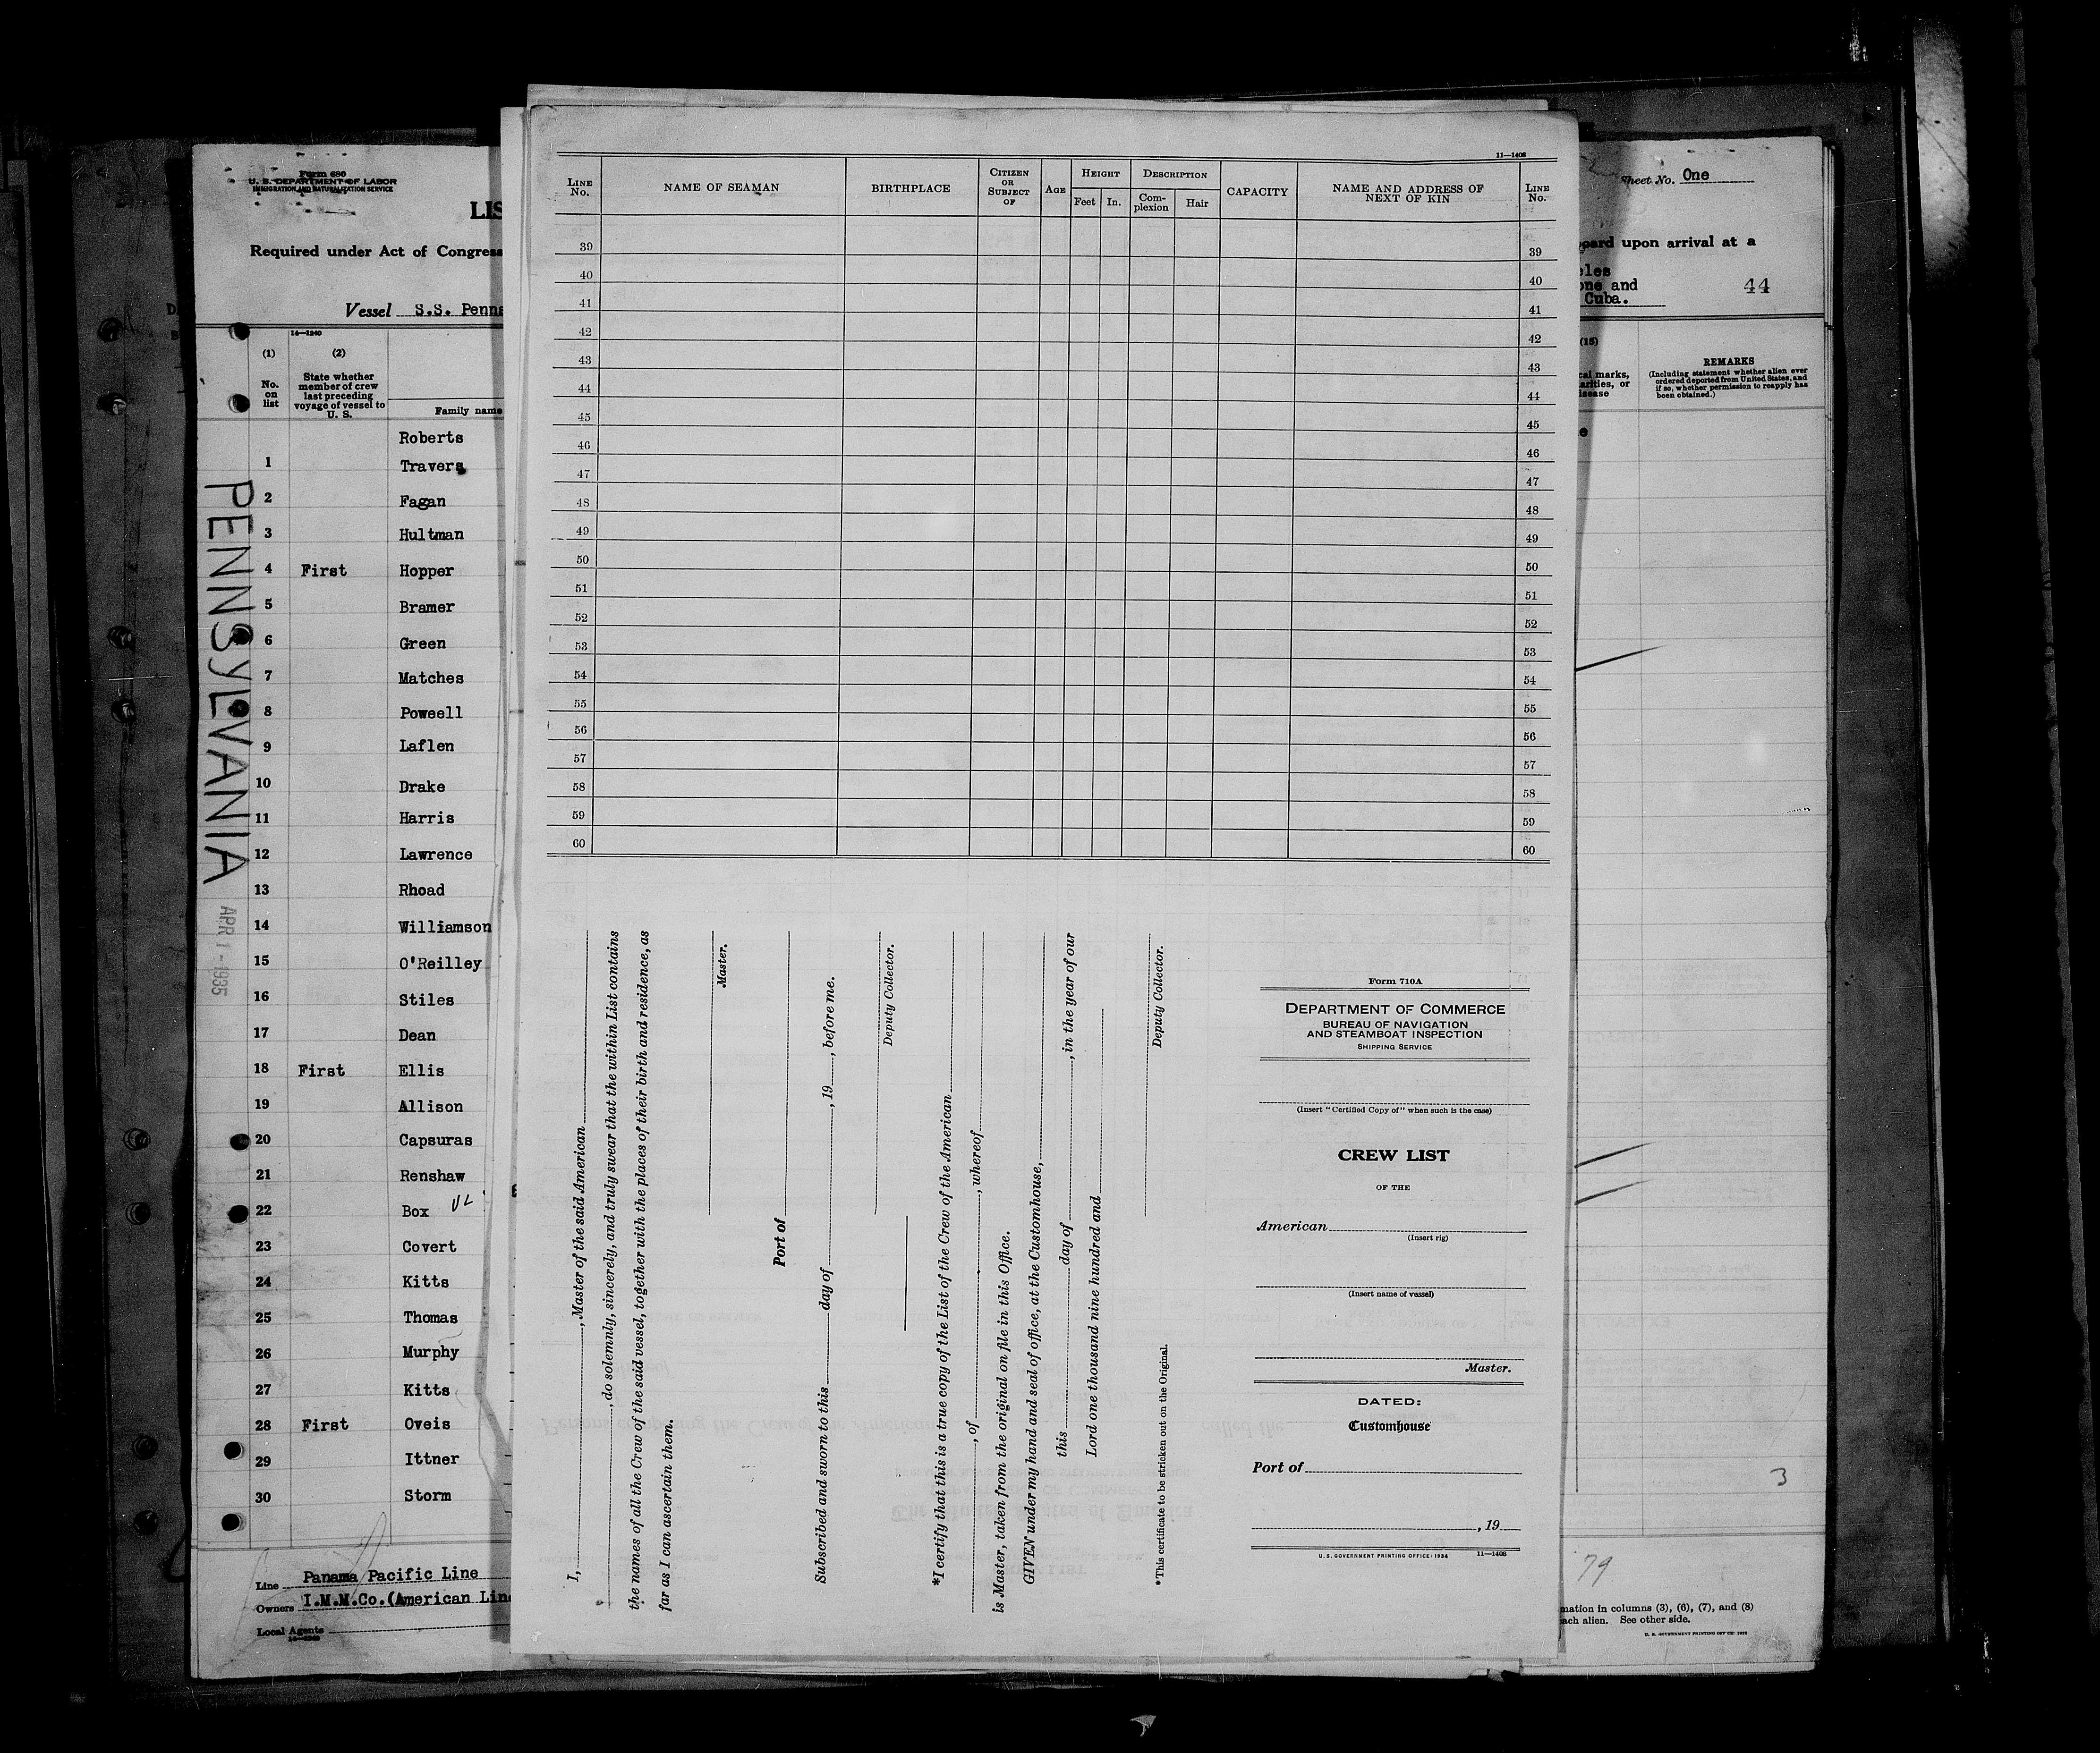 Form 680
U. S. DEPARTMENT OF LABOR
IMMIGRATION AND NATURALIZATION SERVICE
LIS
Required under Act of Congress
Vessel S.S. Penns
14—1240
(1)
No. on list
(2)
State whether member of crew last preceding voyage of vessel to U. S.
Family name
Roberts
1 Travers
2 Fagan
3 Hultman
4 First Hopper
5 Bramer
6 Green
7 Matches
8 Poweell
9 Laflen
10 Drake
11 Harris
12 Lawrence
13 Rhoad
14 Williamson
15 O'Reilley
16 Stiles
17 Dean
18 First Ellis
19 Allison
20 Capsuras
21 Renshaw
22 Box
23 Covert
24 Kitts
25 Thomas
26 Murphy
27 Kitts
28 First Oveis
29 Ittner
30 Storm
PENNSyLVANIA
APR 1 - 1935
Line Panama Pacific Line
Owners I.M.M.Co.(American Lin
Local Agents
14—1240
11—1408
LINE No. NAME OF SEAMAN BIRTHPLACE CITIZEN OR SUBJECT OF AGE HEIGHT Feet In. DESCRIPTION Complexion Hair CAPACITY NAME AND ADDRESS OF NEXT OF KIN LINE No.
39 39
40 40
41 41
42 42
43 43
44 44
45 45
46 46
47 47
48 48
49 49
50 50
51 51
52 52
53 53
54 54
55 55
56 56
57 57
58 58
59 59
60 60
I, , Master of the said American
, do solemnly, sincerely, and truly swear that the within List contains
the names of all the Crew of the said vessel, together with the places of their birth and residence, as
far as I can ascertain them.
Master.
Port of
Subscribed and sworn to this day of , 19 , before me.
Deputy Collector.
*I certify that this is a true copy of the List of the Crew of the American
, of , whereof
is Master, taken from the original on file in this Office.
GIVEN under my hand and seal of office, at the Customhouse,
this day of , in the year of our
Lord one thousand nine hundred and
Deputy Collector.
*This certificate to be stricken out on the Original.
Form 710A
DEPARTMENT OF COMMERCE
BUREAU OF NAVIGATION
AND STEAMBOAT INSPECTION
SHIPPING SERVICE
(Insert "Certified Copy of" when such is the case)
CREW LIST
OF THE
American
(Insert rig)
(Insert name of vessel)
Master.
DATED:
Customhouse
Port of
, 19
U. S. GOVERNMENT PRINTING OFFICE: 1934 11—1408
Sheet No. One
board upon arrival at a
eles
one and
Cuba.
44
(15)
cal marks,
arities, or
isease
REMARKS
(Including statement whether alien ever ordered deported from United States, and if so, whether permission to reapply has been obtained.)
3
79
mation in columns (3), (6), (7), and (8)
ach alien. See other side.
U. S. GOVERNMENT PRINTING OFFICE